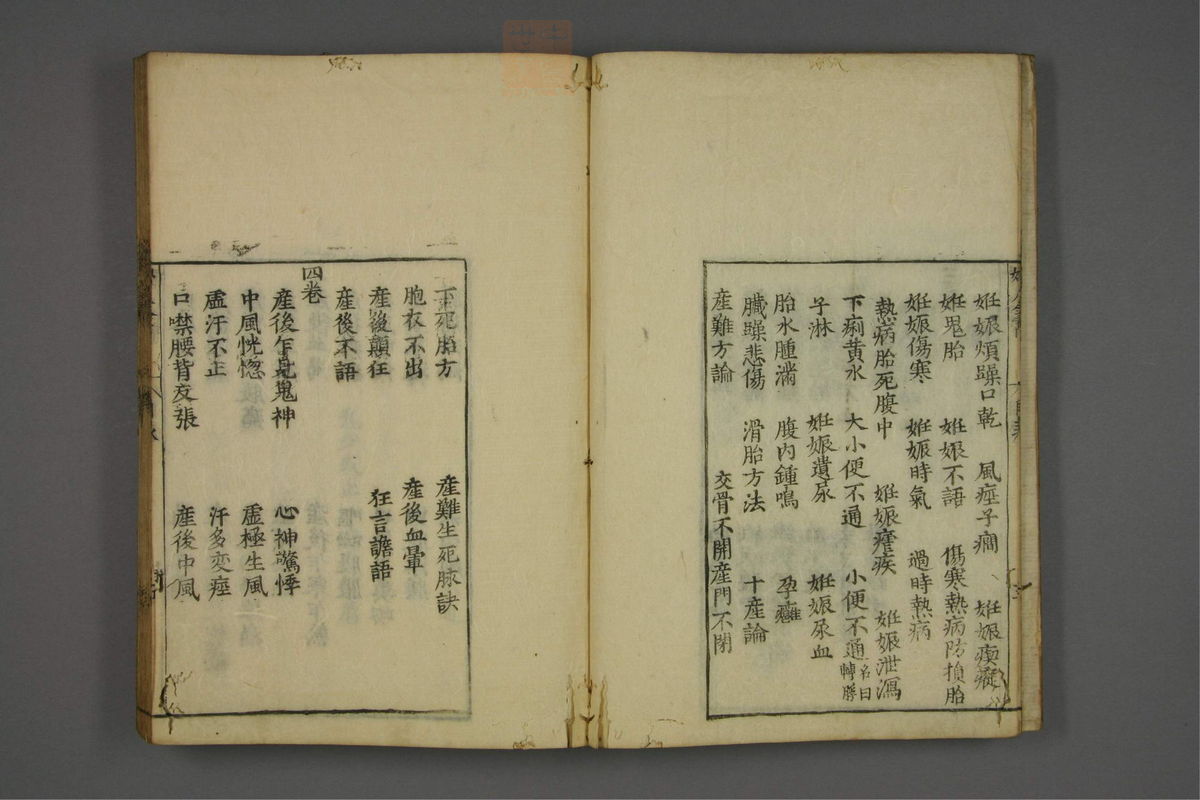 妊娠煩躁口乾　風痙子癎　妊娠瘈瘲
妊鬼胎　妊娠不語　傷寒熱病防損胎
妊娠傷寒　妊娠時氣　過時熱病
熱病胎死腹中　妊娠瘧疾　妊娠泄瀉
下痢黄水　大小便不通　小便不通名曰轉胞
子淋　妊娠遺尿　妊娠尿血
胎水腫滿　腹内鍾鳴　孕癰
臟躁悲傷　滑胎方法　十產論
產難方論　交骨不開產門不閉
下死胎方　產難生死脉訣
胞衣不出　產後血暈
產後顛狂　狂言譫語
產後不語
四卷
產後乍見鬼神　心神驚悸
中風恍惚　虛極生風
虛汗不止　汗多変痙
口噤腰背反張　產後中風